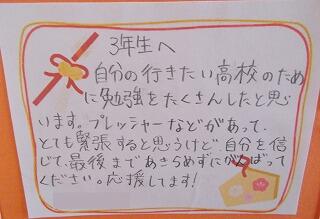 3年生へ
自分の行きたい高校のため
に勉強をたくさんしたと思い
います。プレッシャーなどがあって、
とても緊張すると思うけど、自分を信
じて、最後まであきらめずにがんばって
ください。応援してます!